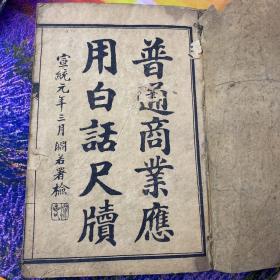 普通商業應
用白話尺牘
宣統元年三月澗若署檢